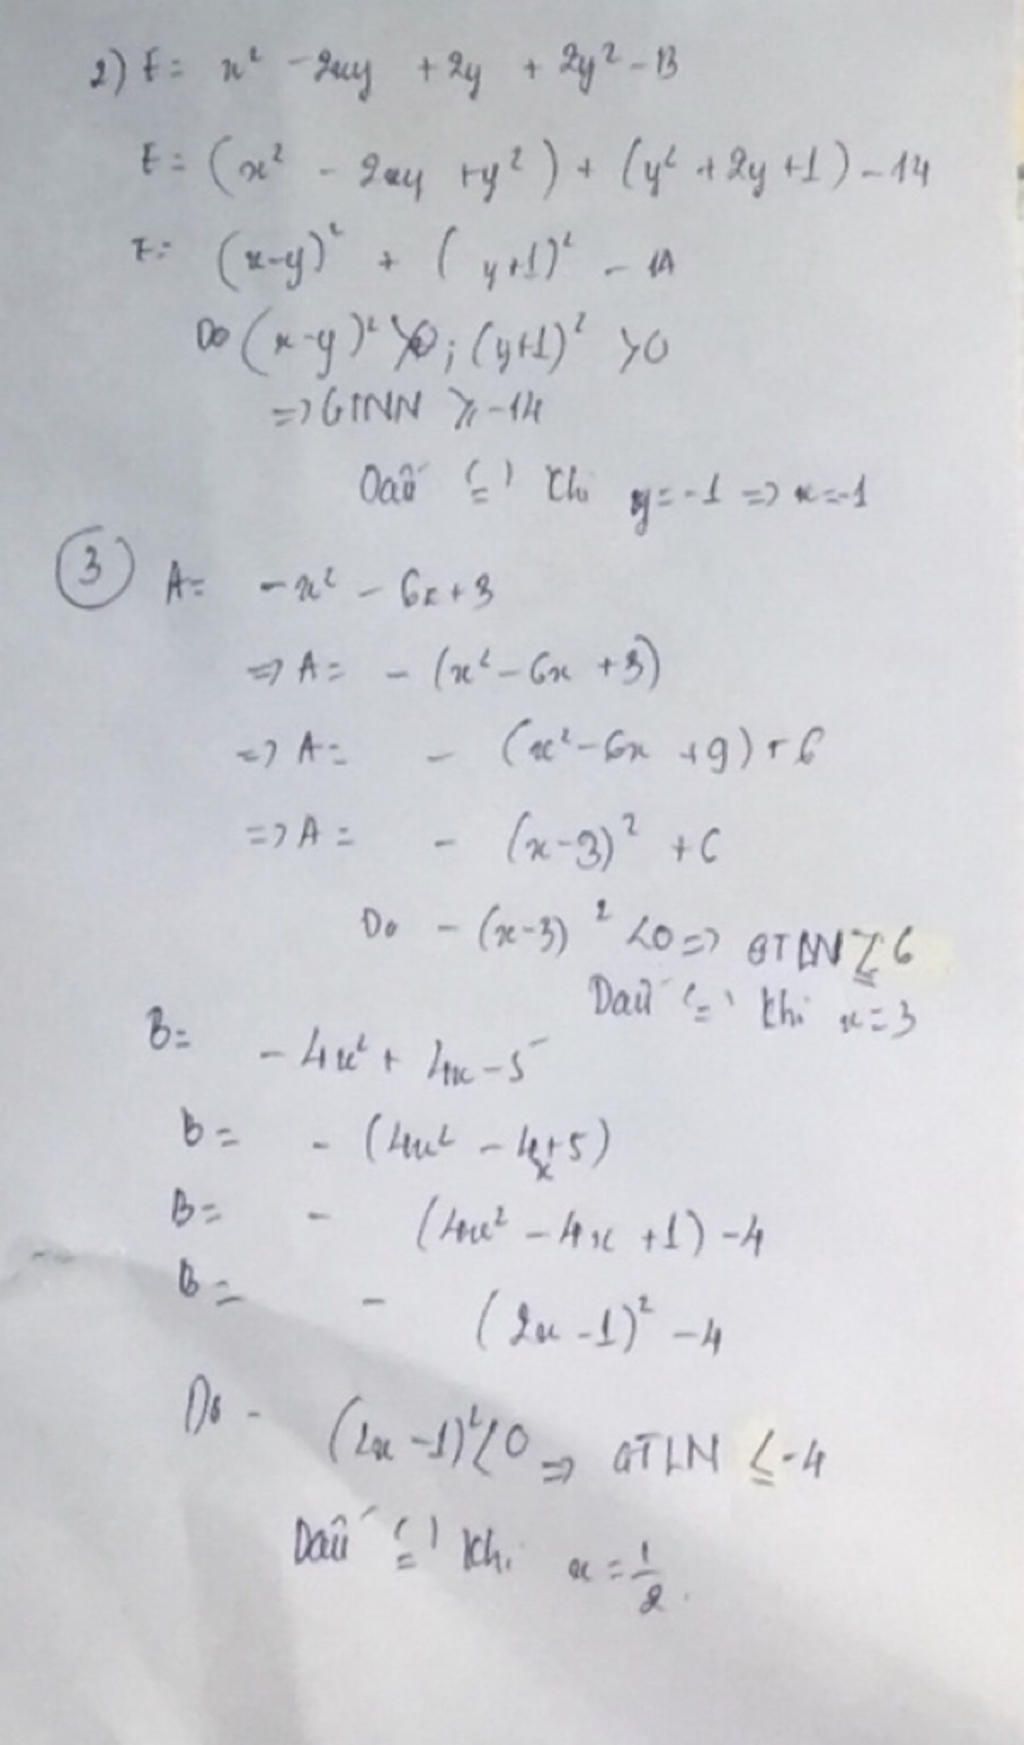 2) E = x² - 2xy + 2y + 2y² - 13
E = (x² - 2xy + y²) + (y² + 2y + 1) - 14
E = (x-y)² + (y+1)² - 14
Do (x-y)² >0; (y+1)² >0
=> GTNN ≥ -14
Dấu "=" khi y = -1 => x = -1
③ A = -x² - 6x + 3
=> A = - (x² - 6x + 3)
=> A = - (x² - 6x + 9) + 6
=> A = - (x-3)² + 6
Do - (x-3)² <0 => GTLN ≤ 6
Dấu "=" khi x = 3
B = - 4x² + 4x - 5
B = - (4x² - 4x + 5)
B = - (4x² - 4x + 1) - 4
B = - (2x - 1)² - 4
Do - (2x - 1)² <0 => GTLN ≤ -4
Dấu "=" khi x = 1/2.